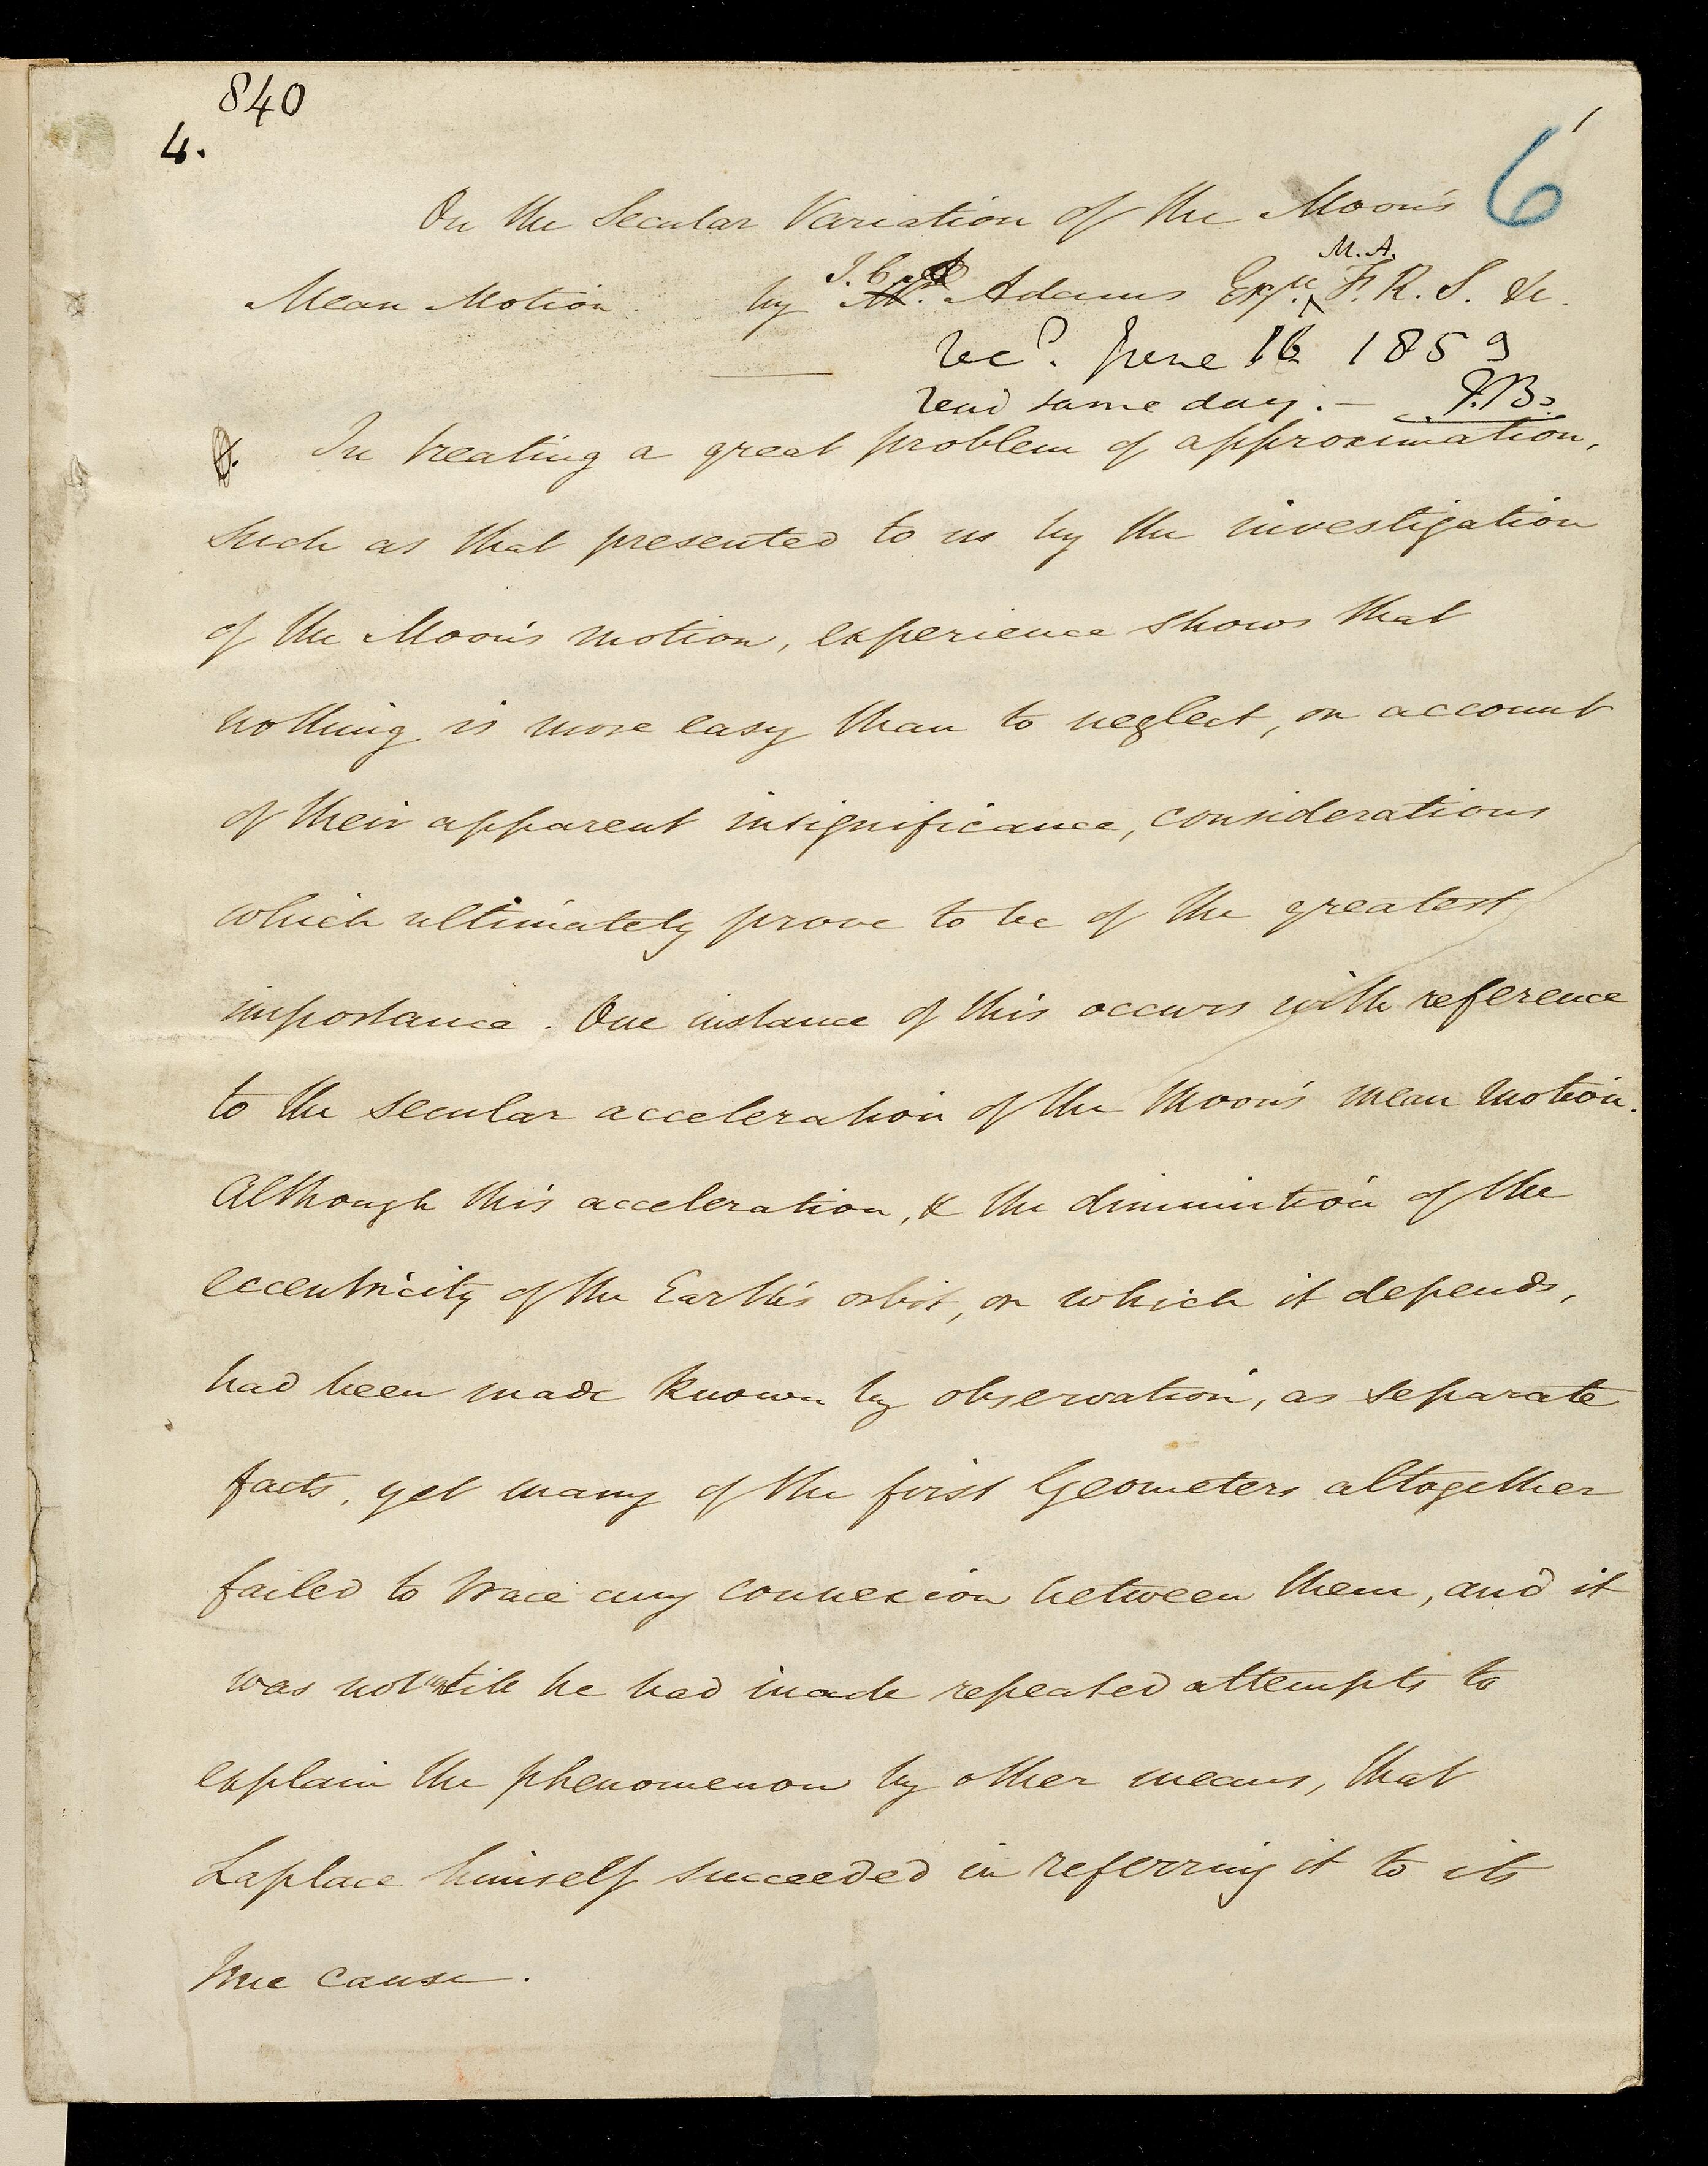 840
4.
1
6
On the Secular Variation of the Moon's
M.A.
Mean Motion. by J. C. Adams Esqre. F. R. S. &c.
Recd. June 16 1859
read same day. — T.B.
In treating a great problem of approximation,
such as that presented to us by the investigation
of the Moon's motion, experience shows that
nothing is more easy than to neglect, on account
of their apparent insignificance, considerations
which ultimately prove to be of the greatest
importance. One instance of this occurs with reference
to the secular acceleration of the Moon's mean motion.
Although this acceleration, & the diminution of the
eccentricity of the Earth's orbit, on which it depends,
had been made known by observation, as separate
facts, yet many of the first Geometers altogether
failed to trace any connexion between them, and it
was not until he had made repeated attempts to
explain the phenomenon by other means, that
Laplace himself succeeded in referring it to its
true cause.